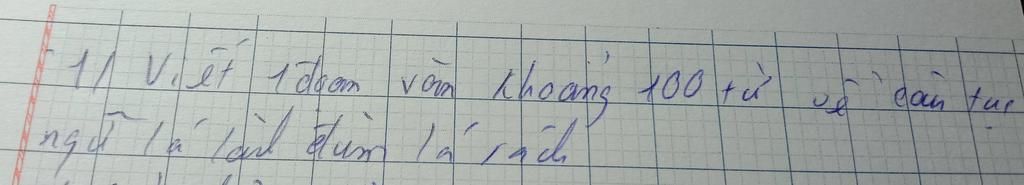 1) Viết 1 đoạn văn khoảng 100 từ về câu tục
ngữ lá lành đùm lá rách